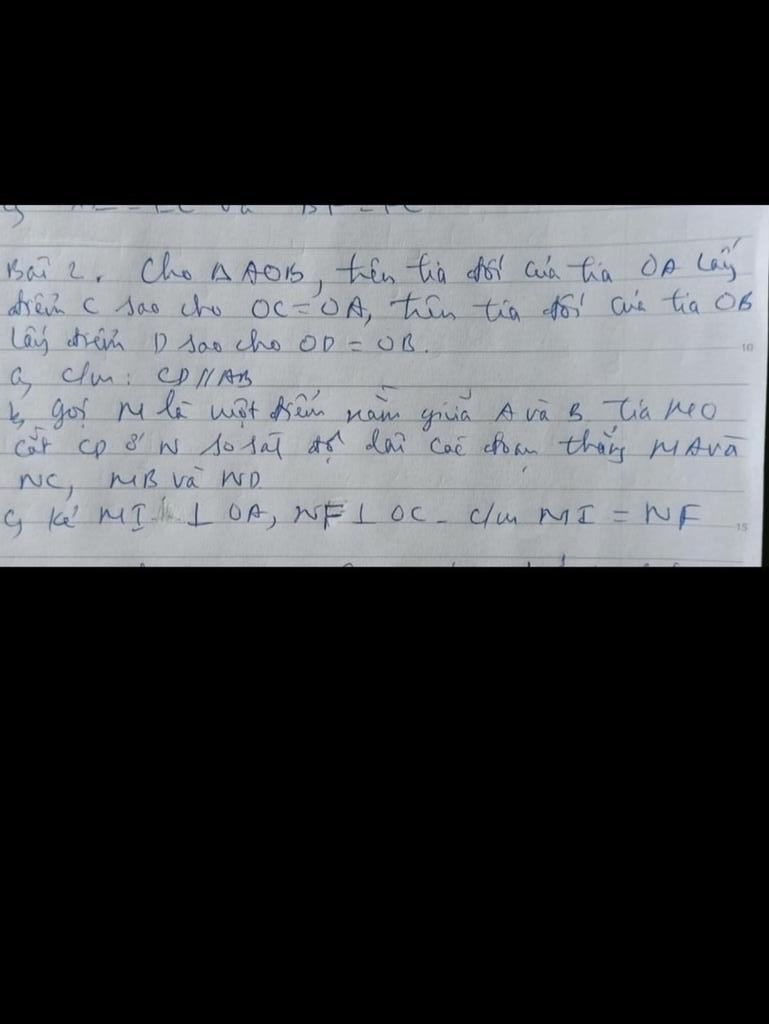 Bài 2. Cho ΔAOB, trên tia đối của tia OA lấy
điểm C sao cho OC = OA, trên tia đối của tia OB
lấy điểm D sao cho OD = OB.
a, c/m: CD // AB
b, gọi M là một điểm nằm giữa A và B. Tia MO
cắt CD ở N so sát độ dài các đoạn thẳng MA và
NC, MB và ND
c, kẻ MI ⊥ OA, NF ⊥ OC - c/m MI = NF
10
15